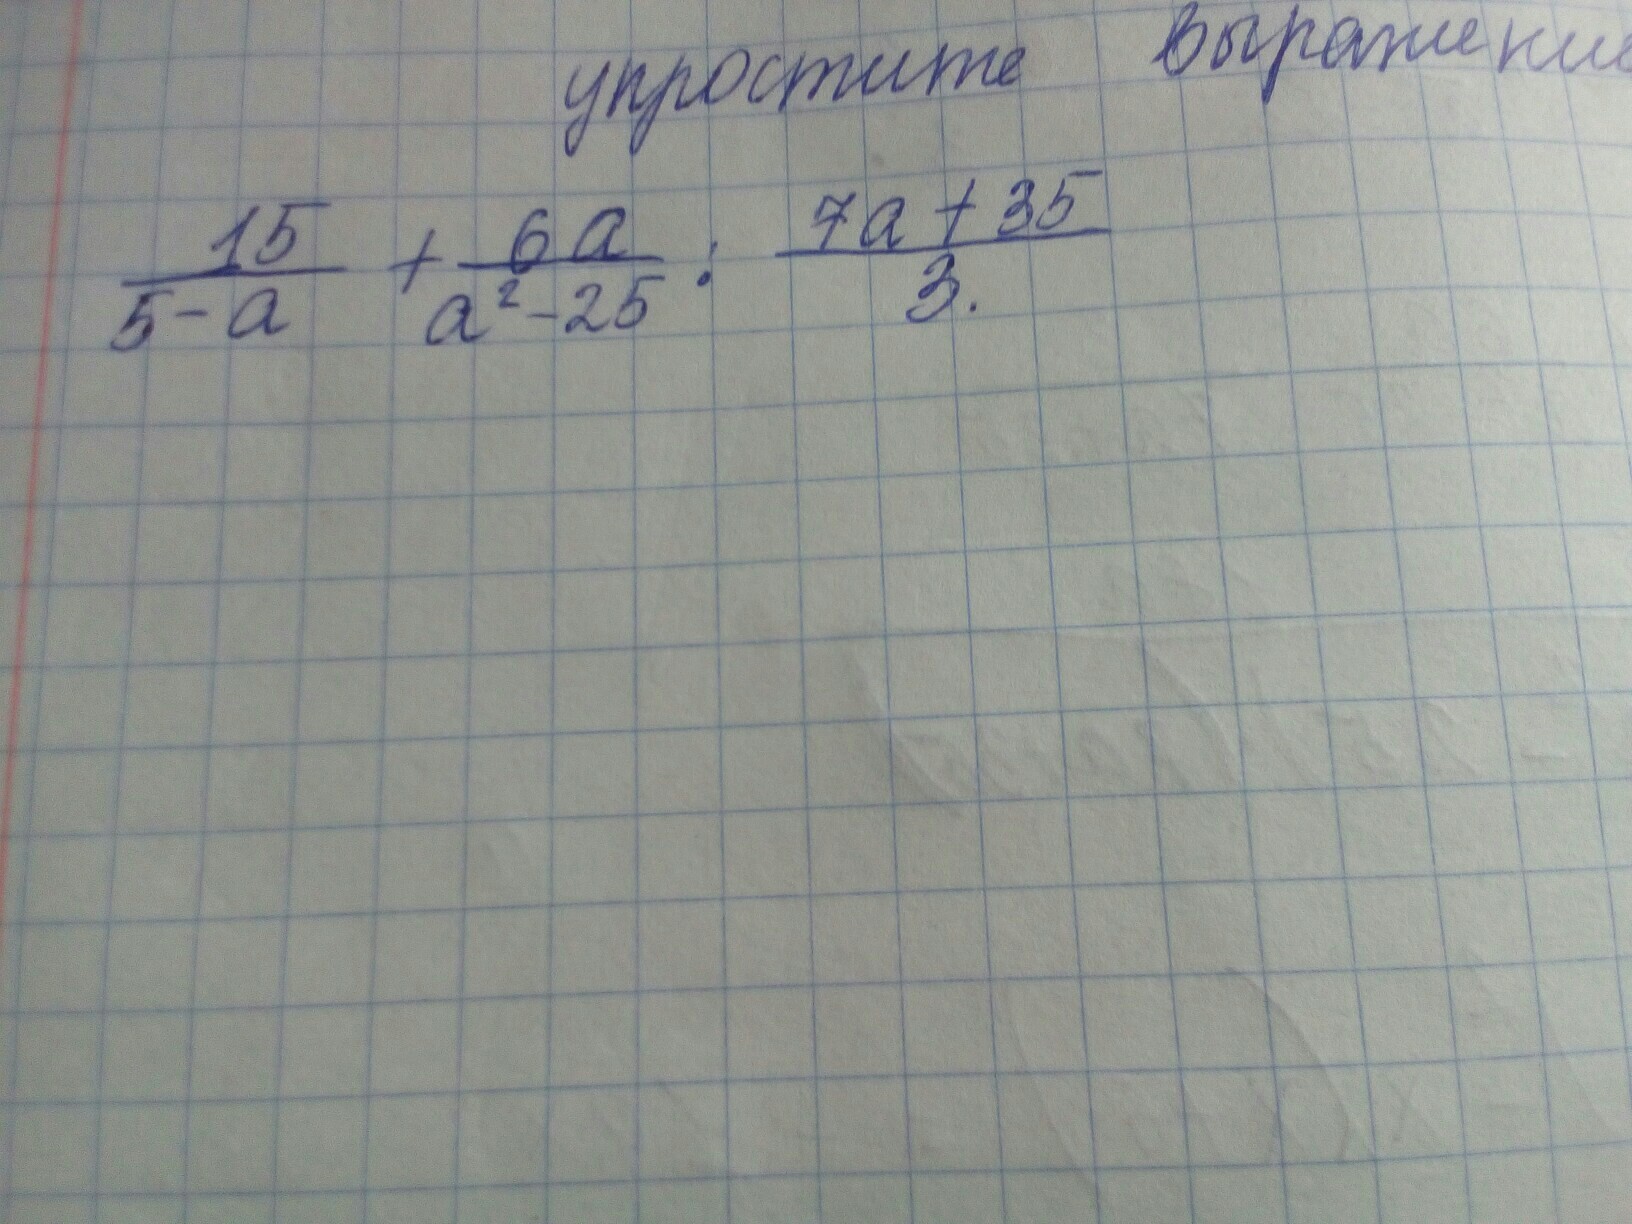 упростите выражение
15/(5-a) + 6a/(a²-25) : (7a+35)/3.